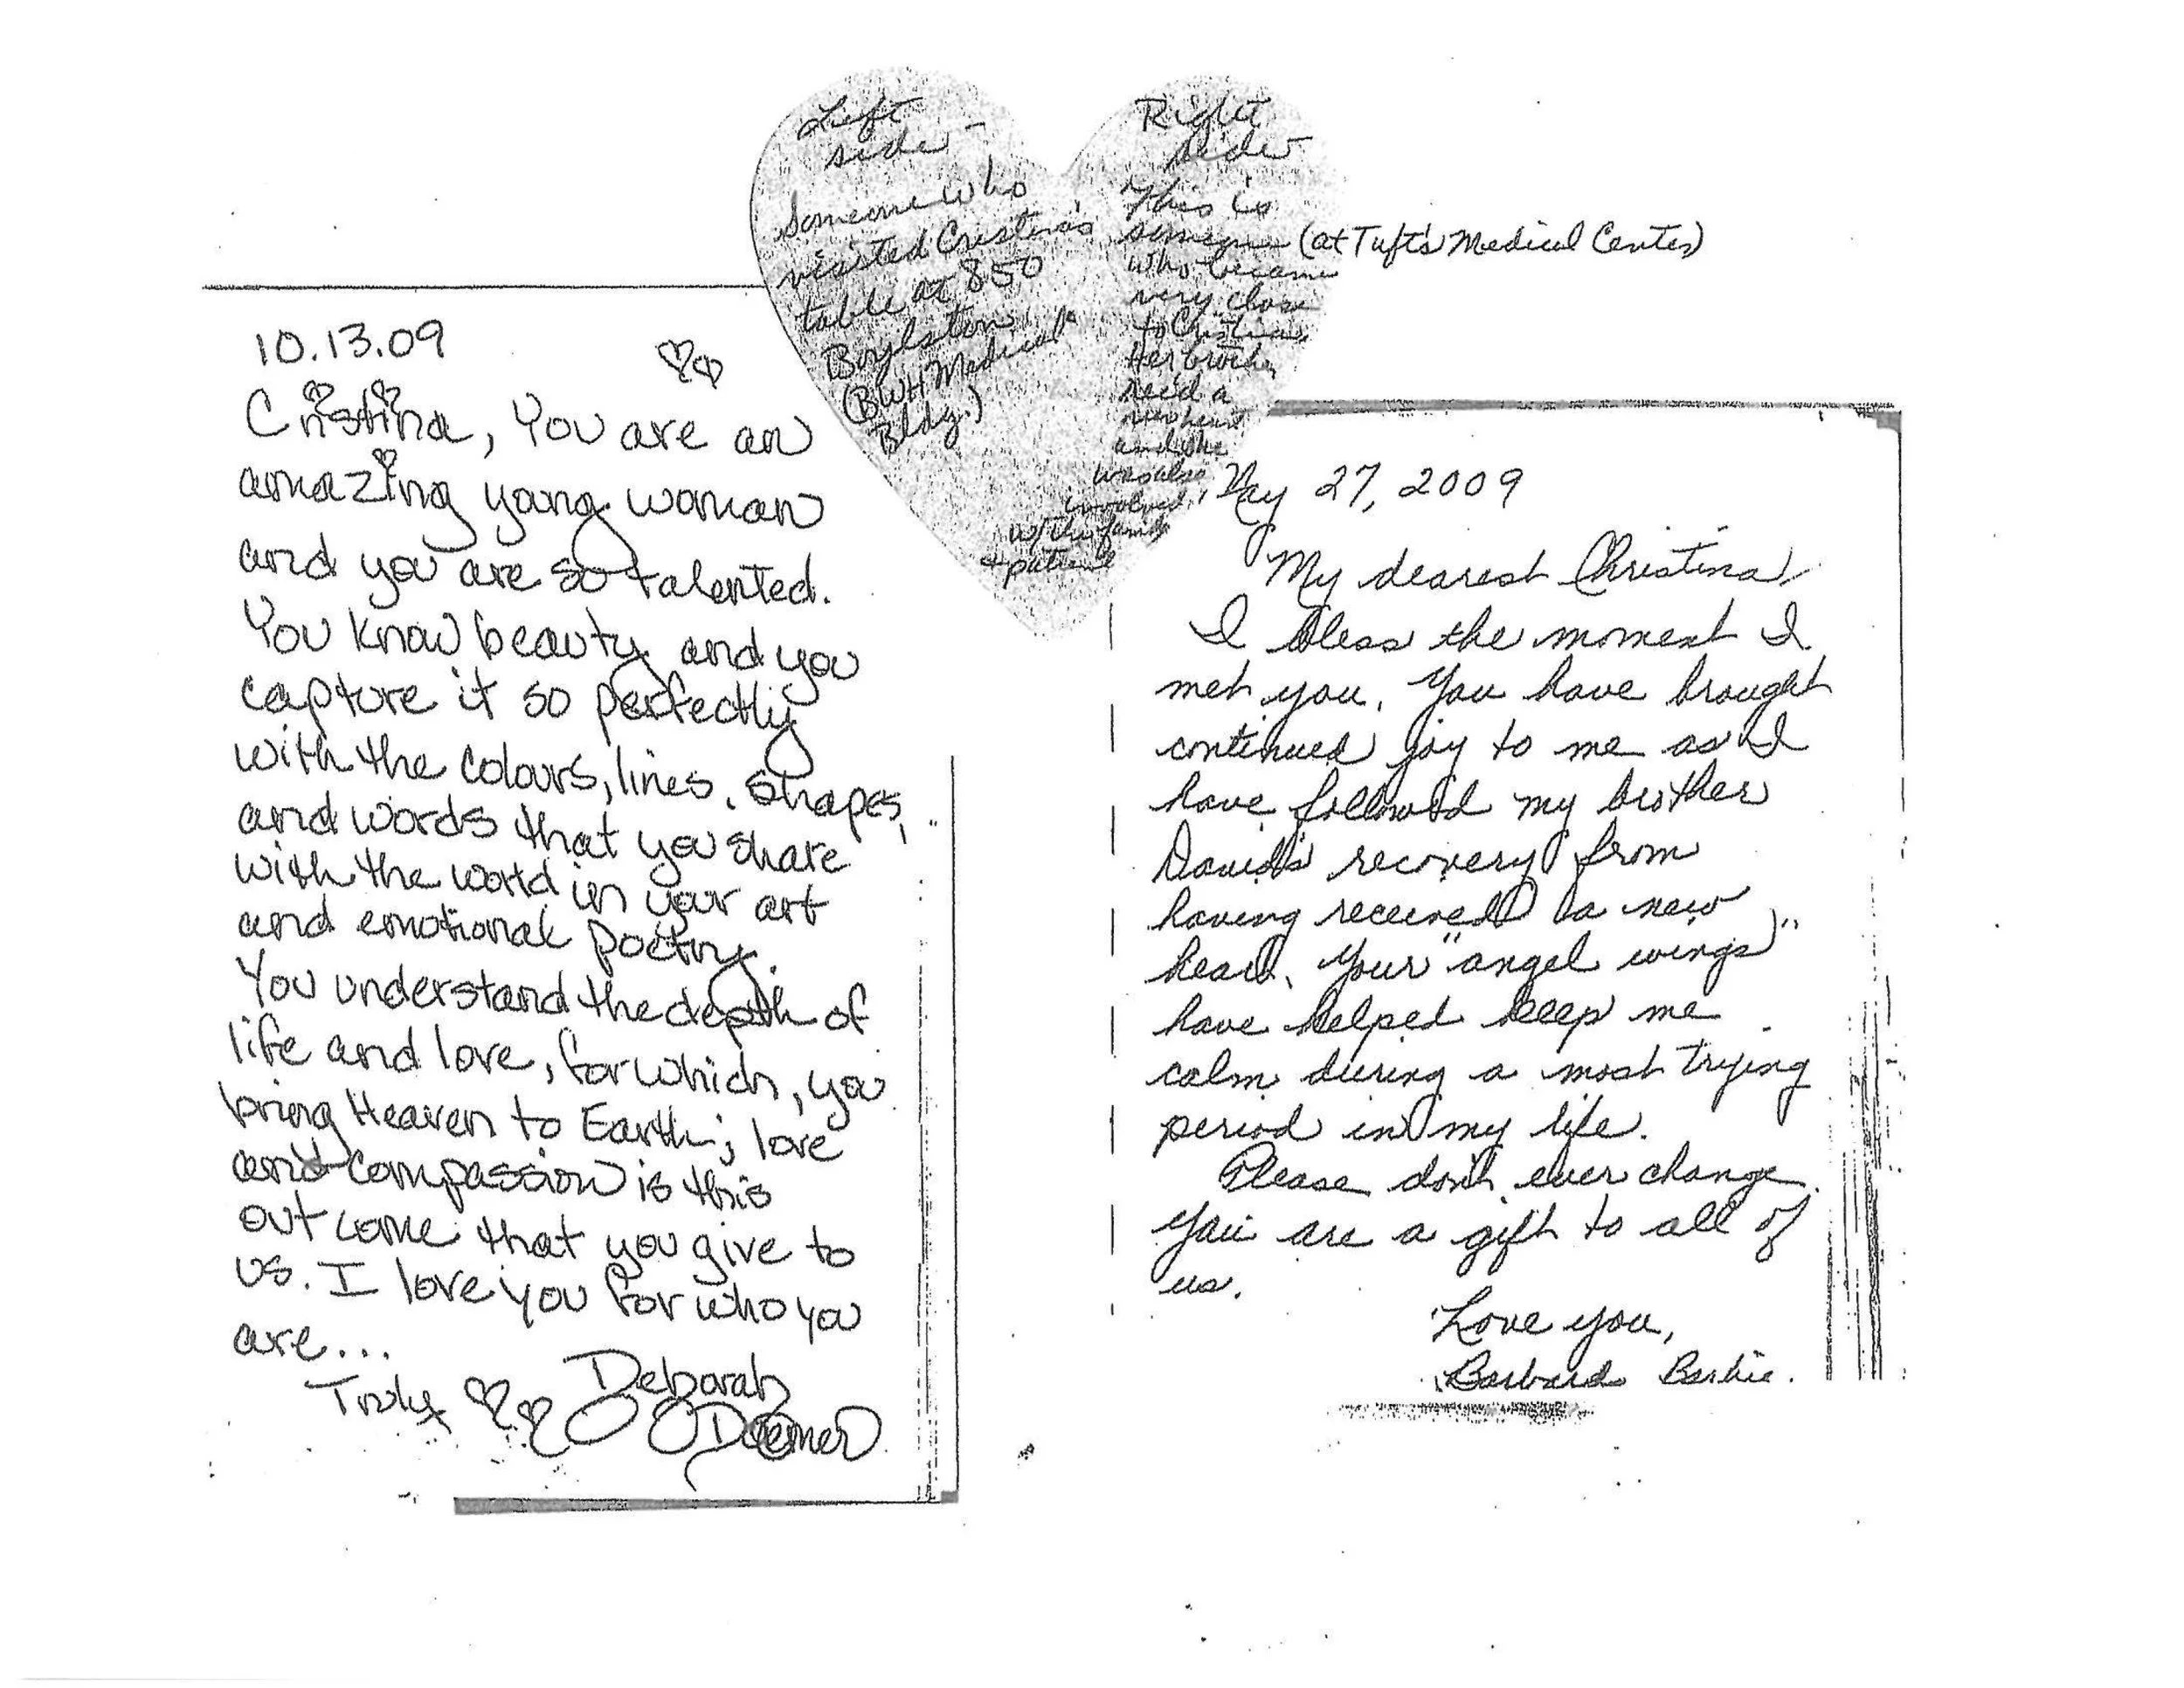 Left
side -
Someone who
visited Cristina's
table at 850
Boylston
(BWH Medical
Bldg.)
Right
side
This is
someone (at Tuft's Medical Center)
who became
very close
to Cristina
Her brother
rec'd a
new heart
and she
was also
involved
w/ the family
+ patient
10.13.09
Cristina, You are an
amazing young woman
and you are so talented.
You know beauty and you
capture it so perfectly
with the colours, lines, shapes,
and words that you share
with the world in your art
and emotional poetry.
You understand the depth of
life and love, for which, you
bring Heaven to Earth; love
and compassion is this
outcome that you give to
us. I love you for who you
are...
Truly Deborah
May 27, 2009
My dearest Christina,
I bless the moment I
met you. You have brought
continued joy to me as I
have followed my brother
David's recovery from
having received a new
heart. Your "angel wings"
have helped keep me
calm during a most trying
period in my life.
Please don't ever change.
You are a gift to all of
us.
Love you,
Barbara